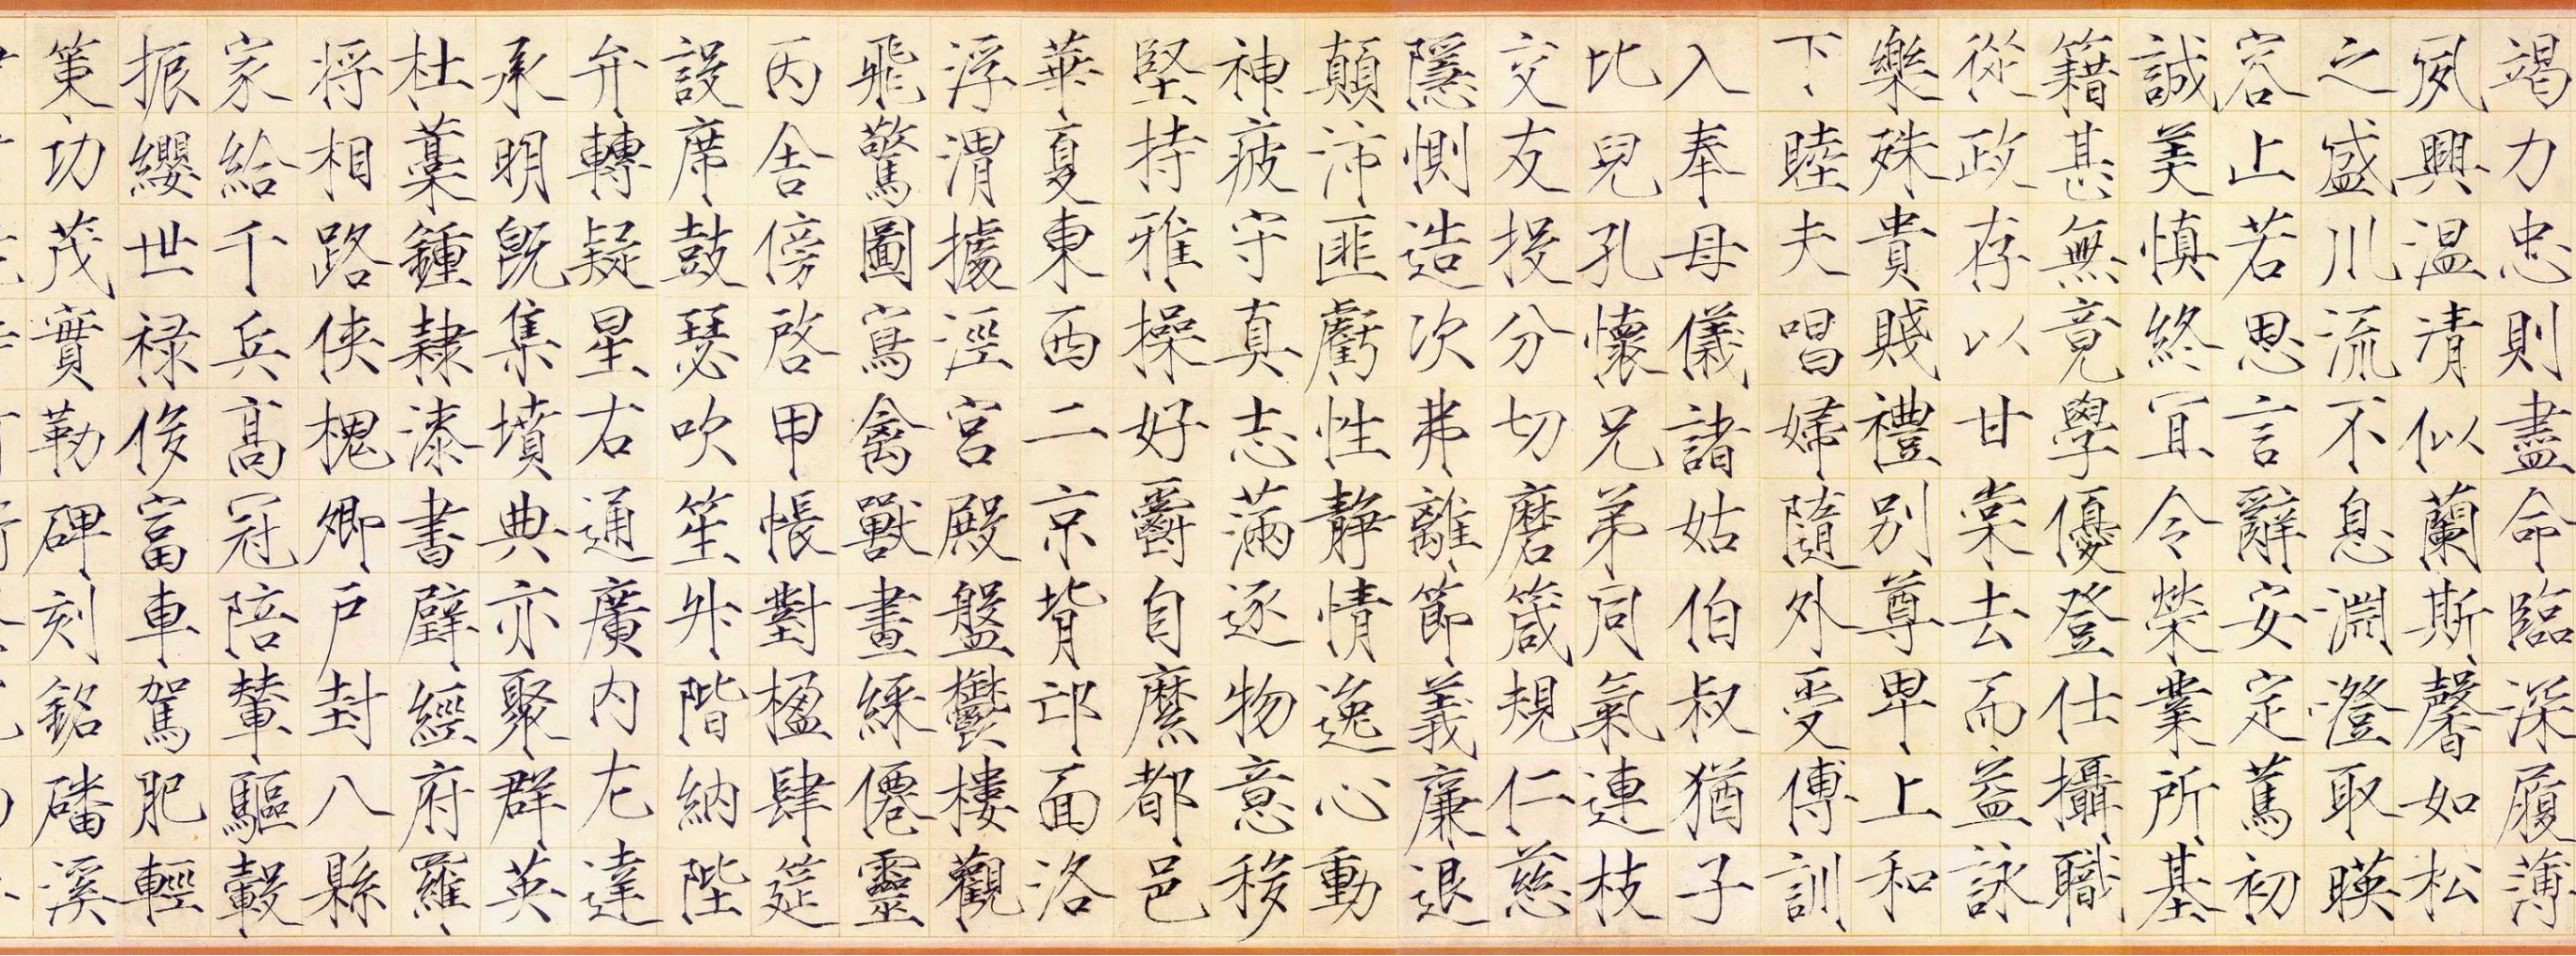 竭力忠則盡命臨深履薄
夙興温清似蘭斯馨如松
之盛川流不息淵澄取暎
容止若思言辭安定篤初
誠美慎終宜令榮業所基
籍甚無竟學優登仕攝職
從政存以甘棠去而益詠
樂殊貴賤禮別尊卑上和
下睦夫唱婦隨外受傅訓
入奉母儀諸姑伯叔猶子
比兒孔懷兄弟同氣連枝
交友投分切磨箴規仁慈
隱惻造次弗離節義廉退
顛沛匪虧性靜情逸心動
神疲守真志滿逐物意移
堅持雅操好爵自縻都邑
華夏東西二京背邙面洛
浮渭據涇宮殿盤鬱樓觀
飛驚圖寫禽獸畫綵僊靈
丙舍傍啓甲帳對楹肆筵
設席鼓瑟吹笙升階納陛
弁轉疑星右通廣內左達
承明既集墳典亦聚群英
杜藁鍾隸漆書壁經府羅
將相路俠槐卿戶封八縣
家給千兵高冠陪輦驅轂
振纓世祿侈富車駕肥輕
策功茂實勒碑刻銘磻溪